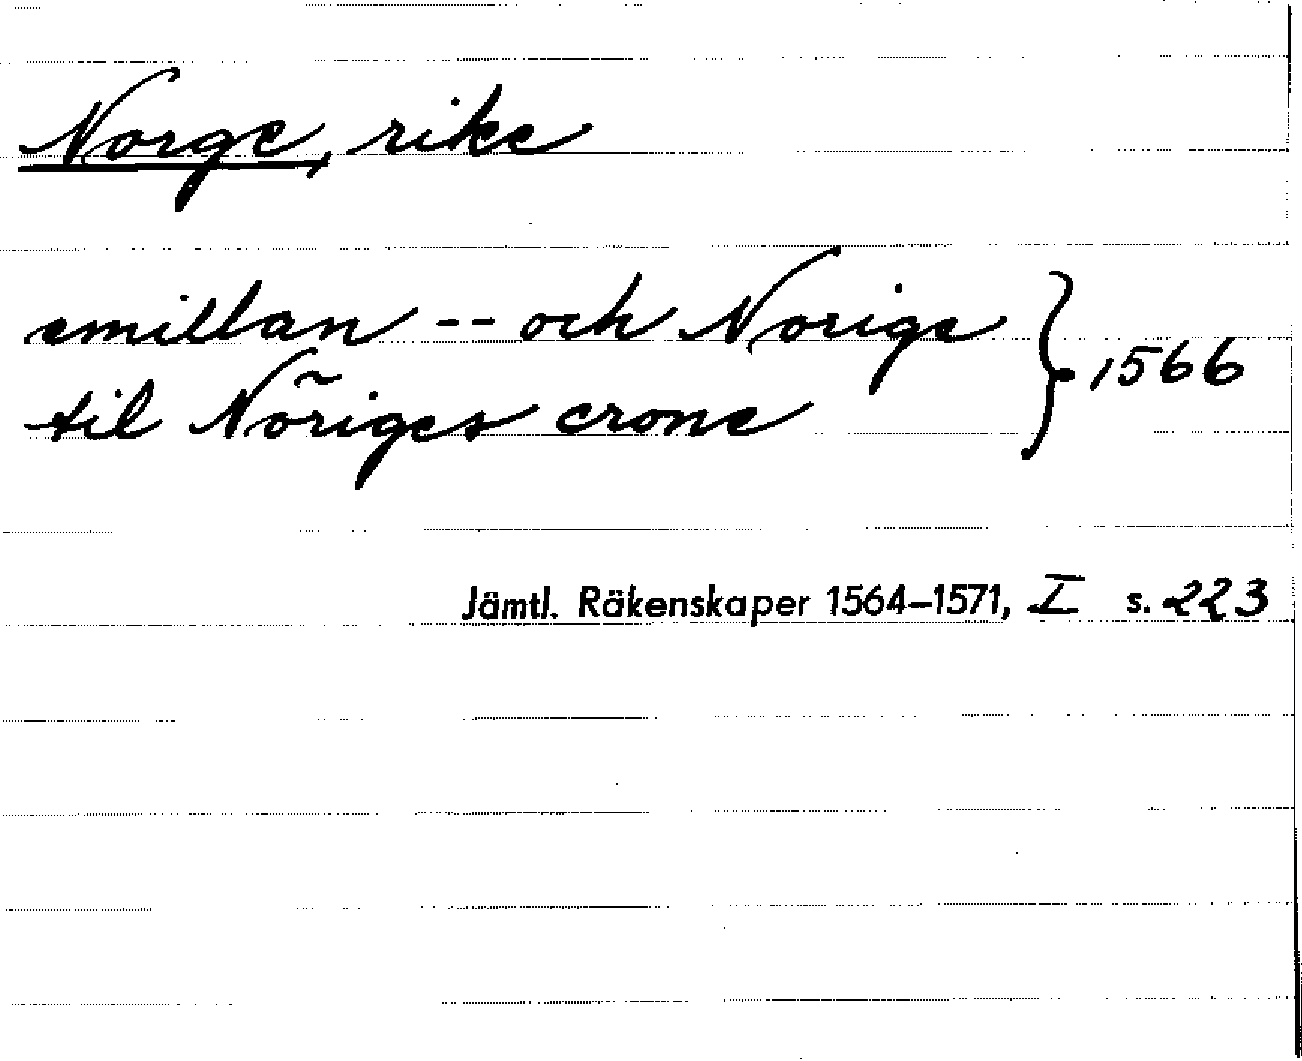 Norge, rike
emillan -- och Norige } 1566
til Nõriges crone
Jämtl. Räkenskaper 1564-1571, I s. 223